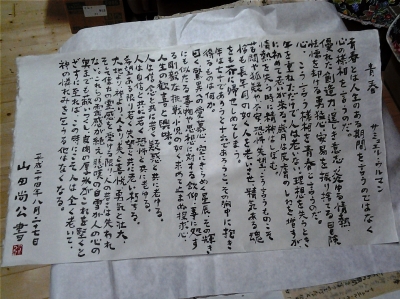 青春
サミエル・ウルマン
青春とは人生のある期間を言うのではなく
心の様相を言うのだ。
優れた創造力、逞しき意志、炎ゆる情熱
怯懦を却ける勇猛心、安易を振り捨てる冒険
心、こう言う様相を青春と言うのだ。
年を重ねただけで人は老いない。理想を失うとき
に初めて老いがくる。歳月は皮膚のしわを増すが
情熱を失う時に精神はしぼむ。
苦悶や、狐疑や、不安、恐怖、失望、こう言うものこそ
恰も長年月の如く人を老いさせ、精気ある魂
をも芥に帰せしめてしまう。
年は七十であろうと十六であろうと、その胸中に抱き
得るものは何か。
曰く驚異への愛慕心、空にきらめく星辰、その輝き
にも似たる事物や思想に対する欽仰、事に処す
る剛毅な挑戦、小児の如く求めて止まぬ探求心、
人生への歓喜と興味。
人は信念と共に若く 疑惑と共に老ゆる。
人は自信と共に若く 恐怖と共に老ゆる。
希望ある限り若く 失望と共に老い朽ちる。
大地より、神より、人より、美と喜悦、勇気と壮大、
そして偉力の霊感を受ける限り人の若さは失われ
ない。これらの霊感が絶え、悲嘆の白雪が人の心の
奥までも蔽いつくし、皮肉の厚氷がこれを堅くと
ざすに至れば、この時にこそ人は全く老いて
神の憐れみを乞う他はなくなる。
平成二十四年八月二十七日
山田尚公書